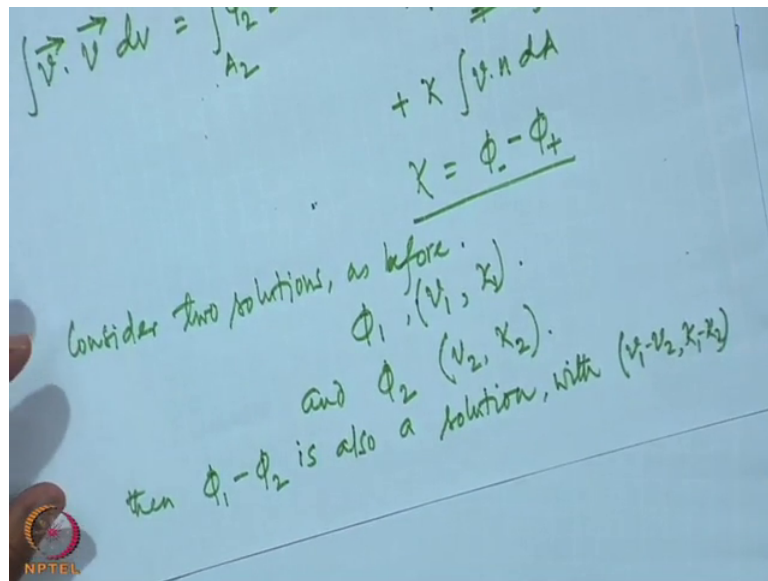 ∫ v⃗ · v⃗ dv = ∫
A₂
+ χ ∫ v.n dA
χ = ϕ₋ - ϕ₊
Consider two solutions, as before.
ϕ₁, (v₁, χ₁).
and ϕ₂ (v₂, χ₂).
then ϕ₁-ϕ₂ is also a solution, with (v₁-v₂, χ₁-χ₂)
NPTEL